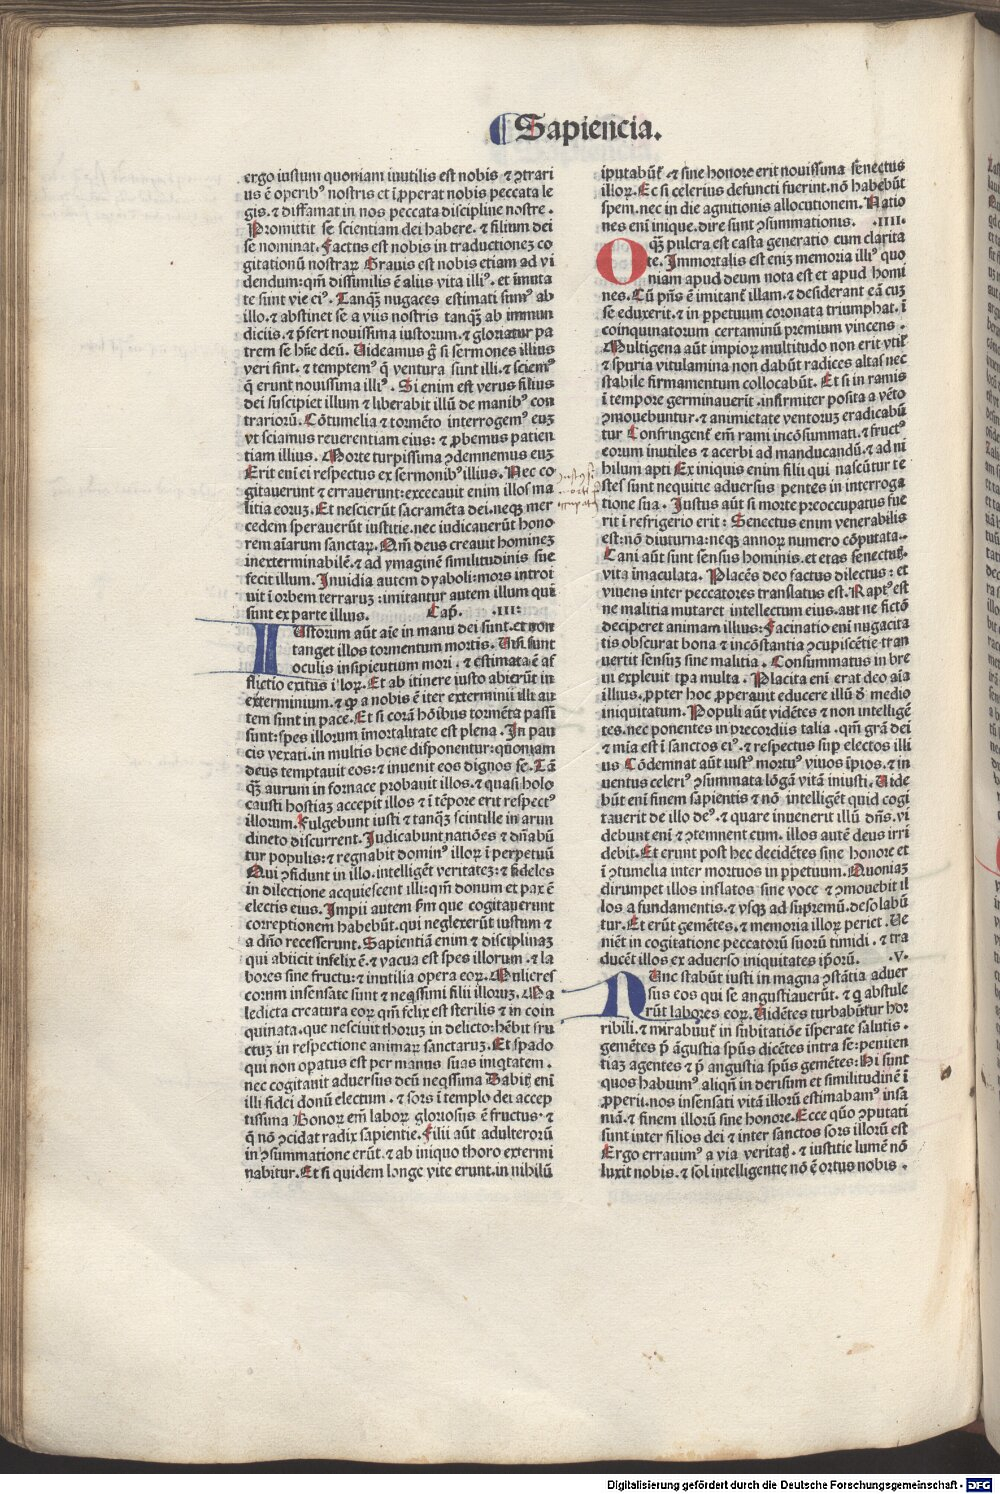 Sapiencia.
ergo iustum quoniam inutilis est nobis ⁊ ↄtrari
us ē operibꝰ nostris et īꝓperat nobis peccata le
gis.⁊ diffamat in nos peccata discipline nostre.
Promittit se scientiam dei habere.⁊ filium dei
se nominat. Factus est nobis in traductioneꝫ co
gitationū nostraꝝ Grauis est nobis etiam ad vi
dendum:qm̄ dissimilis ē alijs vita illiꝰ.et imuta
te sunt vie eiꝰ. Tanqꝫ nugaces estimati sumꝰ ab
illo.⁊ abstinet se a viis nostris tanqꝫ ab immun
diciis.⁊ p̄fert nouissima iustorum.⁊ gloriatur pa
trem se hr̄e deū. Uideamus g̊ si sermones illius
veri sint.⁊ temptemꝰ q̄ ventura sunt illi.⁊ sciemꝰ
q̄ erunt nouissima illiꝰ. Si enim est verus filius
dei suscipiet illum ⁊ liberabit illū de manibꝰ con
trariorū. Cōtumelia ⁊ tormēto interrogemꝰ euꝫ
vt sciamus reuerentiam eius: ⁊ ꝓbemus patien
tiam illius. Morte turpissima ↄdemnemus euꝫ
Erit eni ei respectus ex sermonibꝰ illius. Nec co
gitauerunt ⁊ errauerunt:excecauit enim illos ma
litia eoruꝫ. Et nescierūt sacramēta dei.neqꝫ mer
cedem sperauerūt iustitie.nec iudicauerūt hono
rem aīarum sanctaꝝ. Qm̄ deus creauit homineꝫ
inexterminabilē.⁊ ad ymaginē similitudinis sue
fecit illum. Inuidia autem dyaboli:mors introi
uit ī orbem terraruꝫ:imitantur autem illum qui
sunt ex parte illius. Cap̄. .III:
IUstorum aūt aīe in manu dei sunt.et non
tanget illos tormentum mortis. Uisi sunt
oculis insipientium mori.⁊ estimata ē af
flictio exitus iloꝝ. Et ab itinere iusto abierūt in
exterminium.⁊ qꝫ a nobis ē iter exterminii illi au
tem sunt in pace. Et si corā hōibus tormēta passi
sunt:spes illorum īmortalitate est plena. In pau
cis vexati.in multis bene disponentur:quoniam
deus temptauit eos:⁊ inuenit eos dignos se. Tā
qꝫ aurum in fornace probauit illos.⁊ quasi holo
causti hostiaꝫ accepit illos ⁊ ī tēpore erit respectꝰ
illorum. Fulgebunt iusti ⁊ tanqꝫ scintille in arun
dineto discurrent. Iudicabunt natiōes ⁊ dn̄abū
tur populis:⁊ regnabit dominꝰ illoꝝ ī perpetuū
Qui ↄfidunt in illo.intelligēt veritateꝫ:⁊ fideles
in dilectione acquiescent illi:qm̄ donum et pax ē
electis eius. Impii autem sm̄ que cogitauerunt
correptionem habebūt.qui neglexerūt iustum ⁊
a dn̄o recesserunt. Sapientiā enim ⁊ disciplinaꝫ
qui abiicit infelix ē.⁊ vacua est spes illorum.⁊ la
bores sine fructu:⁊ inutilia opera eoꝝ. Mulieres
eorum insensate sunt ⁊ neqssimi filii illoruꝫ. Ma
ledicta creatura eoꝝ qm̄ felix est sterilis ⁊ in coin
quinata.que nesciuit thoruꝫ in delicto:hēbit fru
ctuꝫ in respectione animaꝝ sanctaruꝫ. Et spado
qui non opatus est per manus suas iniqtatem.
nec cogitauit aduersus deū neqssima Dabitꝫ eni
illi fidei donū electum.⁊ sors ī templo dei accep
tissima Bonoꝝ em̄ laboꝝ gloriosus ē fructus.⁊
q̄ nō ↄcidat radix sapientie. Filii aūt adulterorū
in ↄsummatione erūt.⁊ ab iniquo thoro extermi
nabitur. Et si quidem longe vite erunt.in nihilū
iputabūt̄ ⁊ sine honore erit nouissima senectus
illoꝝ. Et si celerius defuncti fuerint.nō habebūt
spem.nec in die agnitionis allocutionem. Natio
nes eni inique.dire sunt ↄsummationis. .IIII.
OQꝫ pulcra est casta generatio cum clarita
te. Immortalis est eniꝫ memoria illiꝰ quo
niam apud deum nota est et apud homi
nes. Cū pn̄s ē imitant̄ illam.⁊ desiderant eā cuꝫ
se eduxerit.⁊ in ꝑpetuum coronata triumphat.ī
coinquinatorum certaminū premium vincens.
Multigena aūt impioꝝ multitudo non erit vtiꝉ
⁊ spuria vitulamina non dabūt radices altas nec
stabile firmamentum collocabūt. Et si in ramis
ī tempore germinauerit.infirmiter posita a vēto
ↄmouebuntur.⁊ a nimietate ventoruꝫ eradicabū
tur Confringent̄ em̄ rami incōsummati.⁊ fructꝰ
eorum inutiles ⁊ acerbi ad manducandū.⁊ ad ni
hilum apti Ex iniquis enim filii qui nascūtur te
stes sunt nequitie aduersus pentes in interroga
tione sua. Iustus aūt si morte preoccupatus fue
rit ī refrigerio erit: Senectus enim venerabilis
est:nō diuturna:neqꝫ annoꝝ numero cōputata.
Cani aūt sunt sensus hominis.et etas senectutꝭ.
vita īmaculata. Placēs deo factus dilectus:et
viuens inter peccatores translatus est. Raptꝰ est
ne malitia mutaret intellectum eius.aut ne fictō
deciperet animam illius: Facinatio eni nugacita
tis obscurat bona ⁊ incōstantia ↄcupiscētie tran
uertit sensuꝫ sine malitia. Consummatus in bre
in expleuit tꝑa multa. Placita eni erat deo aīa
illius.ꝓpter hoc ꝓperauit educere illū ð medio
iniquitatum. Populi aūt vidētes ⁊ non intelligē
tes.nec ponentes in precordiis talia.qm̄ grā dei
⁊ mīa est ī sanctos eiꝰ.⁊ respectus sup electos illi
us Cōdemnat aūt iustꝰ mortuꝰ viuos īpios.⁊ in
uentus celeriꝰ ↄsummata lōgā vitā iniusti. Uide
būt eni finem sapientis ⁊ nō intelligēt quid cogi
tauerit de illo deꝰ.⁊ quare inuenerit illū dn̄s.vi
debunt eni ⁊ ↄtemnent eum.illos autē deus irri
debit. Et erunt post hec decidētes sine honore et
ī ↄtumelia inter mortuos in ꝑpetuum. Quoniaꝫ
dirumpet illos inflatos sine voce ⁊ ↄmouebit il
los a fundamentis.⁊ vsqꝫ ad supremū.desolabū
tur. Et erūt gemētes.⁊ memoria illoꝝ periet. Ue
niēt in cogitatione peccatorū suorū timidi.⁊ tra
ducēt illos ex aduerso iniquitates ip̄orū. .V.
NUnc stabūt iusti in magna ↄstātia aduer
sus eos qui se angustiauerūt.⁊ q̄ abstule
rūt labores eoꝝ. Uidētes turbabūtur hor
ribili.⁊ mirabūt̄ in subitatiōe īsperate salutis.
gemētes p̄ āgustia spūs dicētes intra se:peniten
tiaꝫ agentes ⁊ p̄ angustia spūs gemētes: Hi sunt
quos habuimꝰ aliqn̄ in derisum et similitudinē ī
ꝓperii.nos insensati vitā illorū estimabamꝰ insa
niā.⁊ finem illorū sine honore. Ecce quō ↄputati
sunt inter filios dei ⁊ inter sanctos sors illorū est
Ergo errauimꝰ a via veritatꝭ.⁊ iustitie lumē nō
luxit nobis.⁊ sol intelligentie nō ē ortus nobis.
Digitalisierung gefördert durch die Deutsche Forschungsgemeinschaft - DFG